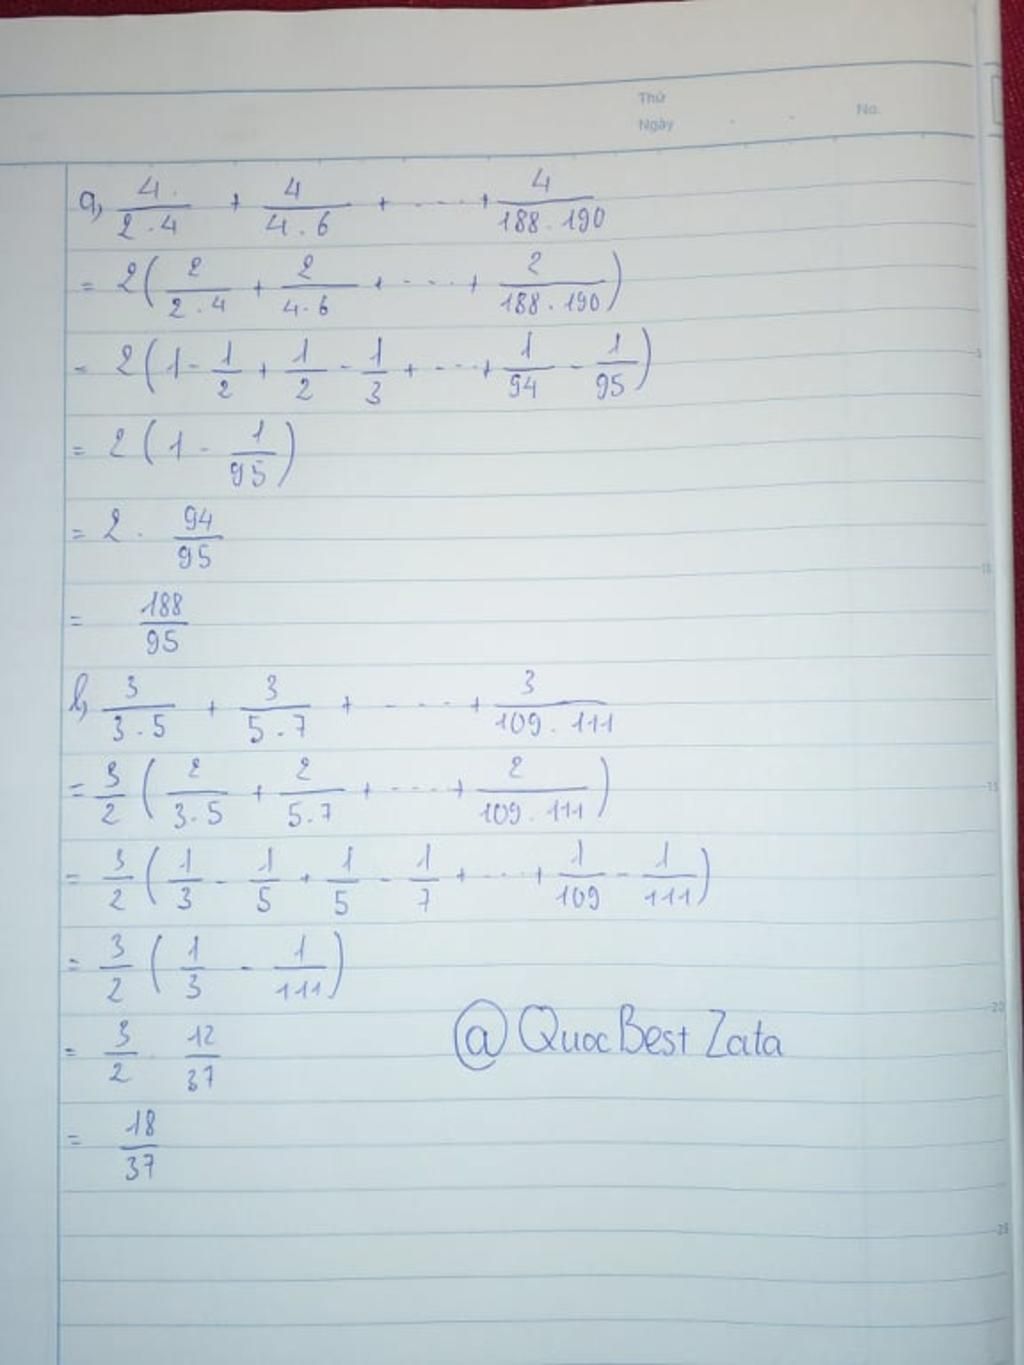 Thứ
Ngày
No.
a, 4/(2.4) + 4/(4.6) + .... + 4/(188.190)
= 2(2/(2.4) + 2/(4.6) + .... + 2/(188.190))
= 2(1 - 1/2 + 1/2 - 1/3 + .... + 1/94 - 1/95)
= 2(1 - 1/95)
= 2 . 94/95
= 188/95
b, 3/(3.5) + 3/(5.7) + .... + 3/(109.111)
= 3/2 (2/(3.5) + 2/(5.7) + .... + 2/(109.111))
= 3/2 (1/3 - 1/5 + 1/5 - 1/7 + ... + 1/109 - 1/111)
= 3/2 (1/3 - 1/111)
= 3/2 . 12/37
@ QuocBestZata
= 18/37